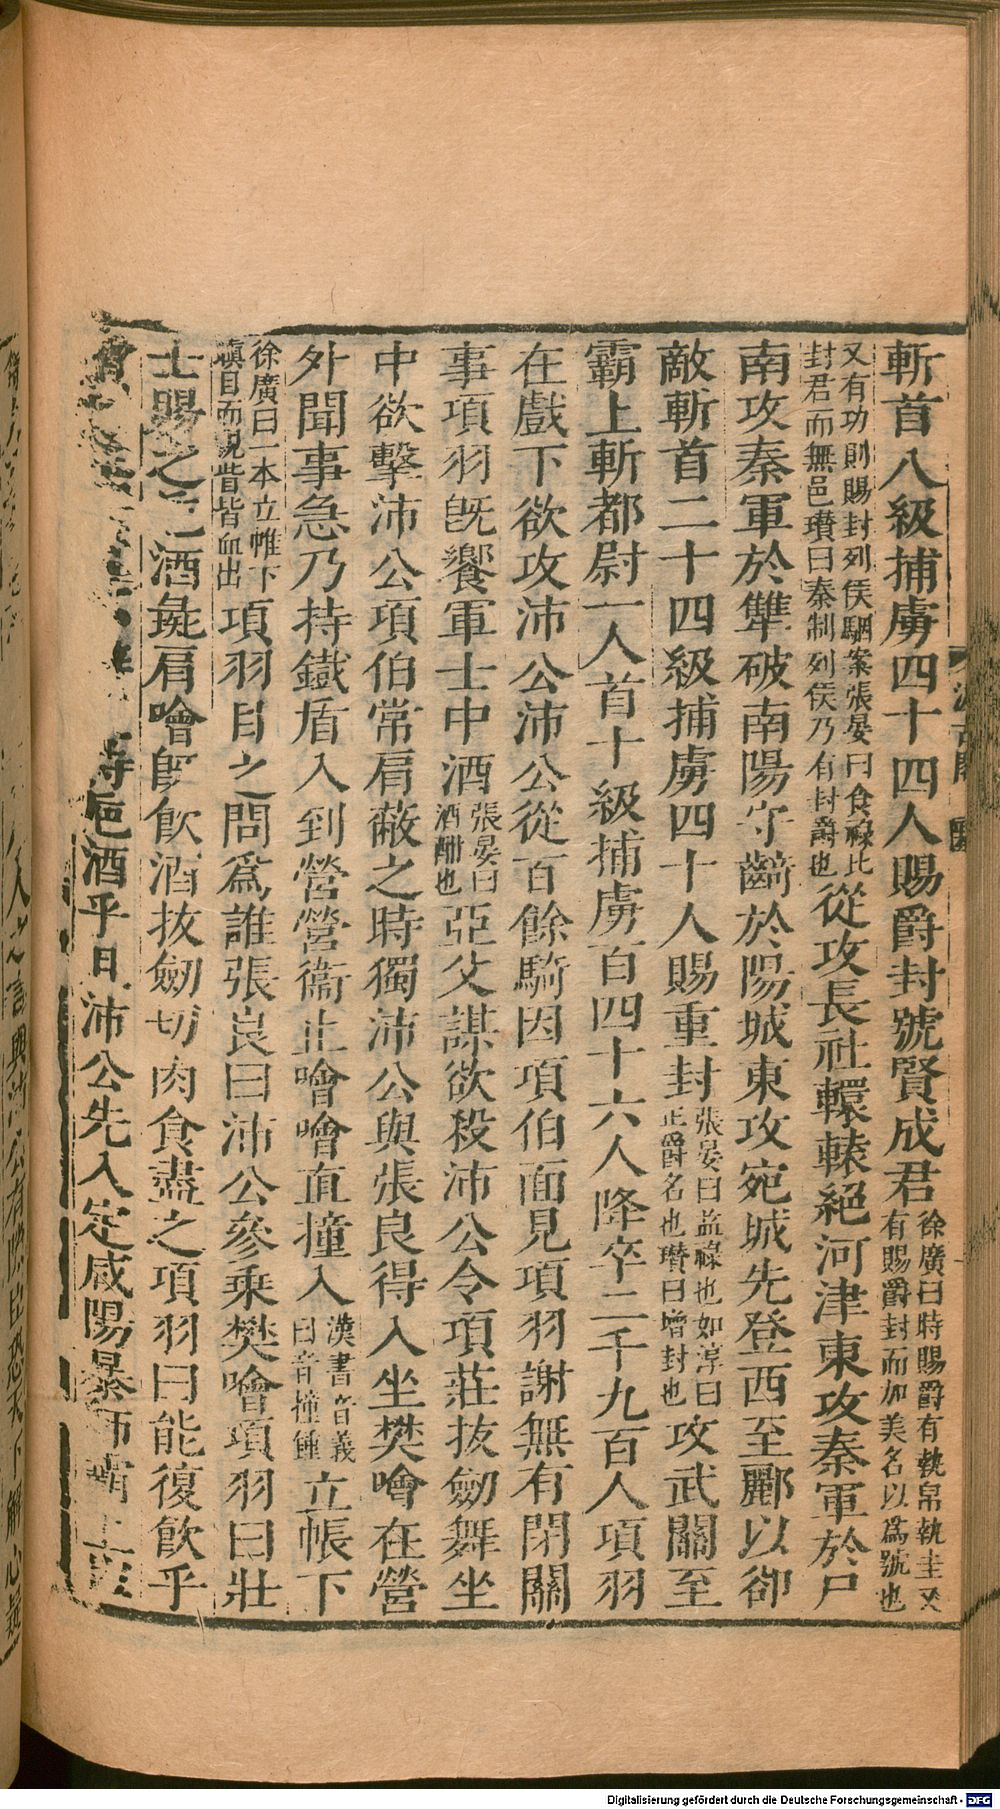 斬首八級捕虜四十四人賜爵封號賢成君徐廣曰時賜爵有執帛執圭又有賜爵封而加美名以爲號也
又有功則賜封列侯駰案張晏曰食祿比封君而無邑瓚曰秦制列侯乃有封爵也從攻長社轘轅絕河津東攻秦軍於尸
南攻秦軍於犨破南陽守齮於陽城東攻宛城先登西至酈以卻
敵斬首二十四級捕虜四十人賜重封張晏曰益祿也如淳曰正爵名也瓚曰增封也攻武關至
霸上斬都尉一人首十級捕虜百四十六人降卒二千九百人項羽
在戲下欲攻沛公沛公從百餘騎因項伯面見項羽謝無有閉關
事項羽旣饗軍士中酒張晏曰酒酣也亞父謀欲殺沛公令項莊拔劒舞坐
中欲擊沛公項伯常肩蔽之時獨沛公與張良得入坐樊噲在營
外聞事急乃持鐵盾入到營營衞止噲噲直撞入漢書音義曰音撞鍾立帳下
徐廣曰一本立帷下瞋目而視眥皆血出項羽目之問爲誰張良曰沛公參乘樊噲項羽曰壯
士賜之卮酒彘肩噲旣飮酒拔劒切肉食盡之項羽曰能復飮乎
噲卮酒乎且沛公先入定咸陽暴師霸上
人之言與沛公有隙臣恐天下解心疑
Digitalisierung gefördert durch die Deutsche Forschungsgemeinschaft - DFG